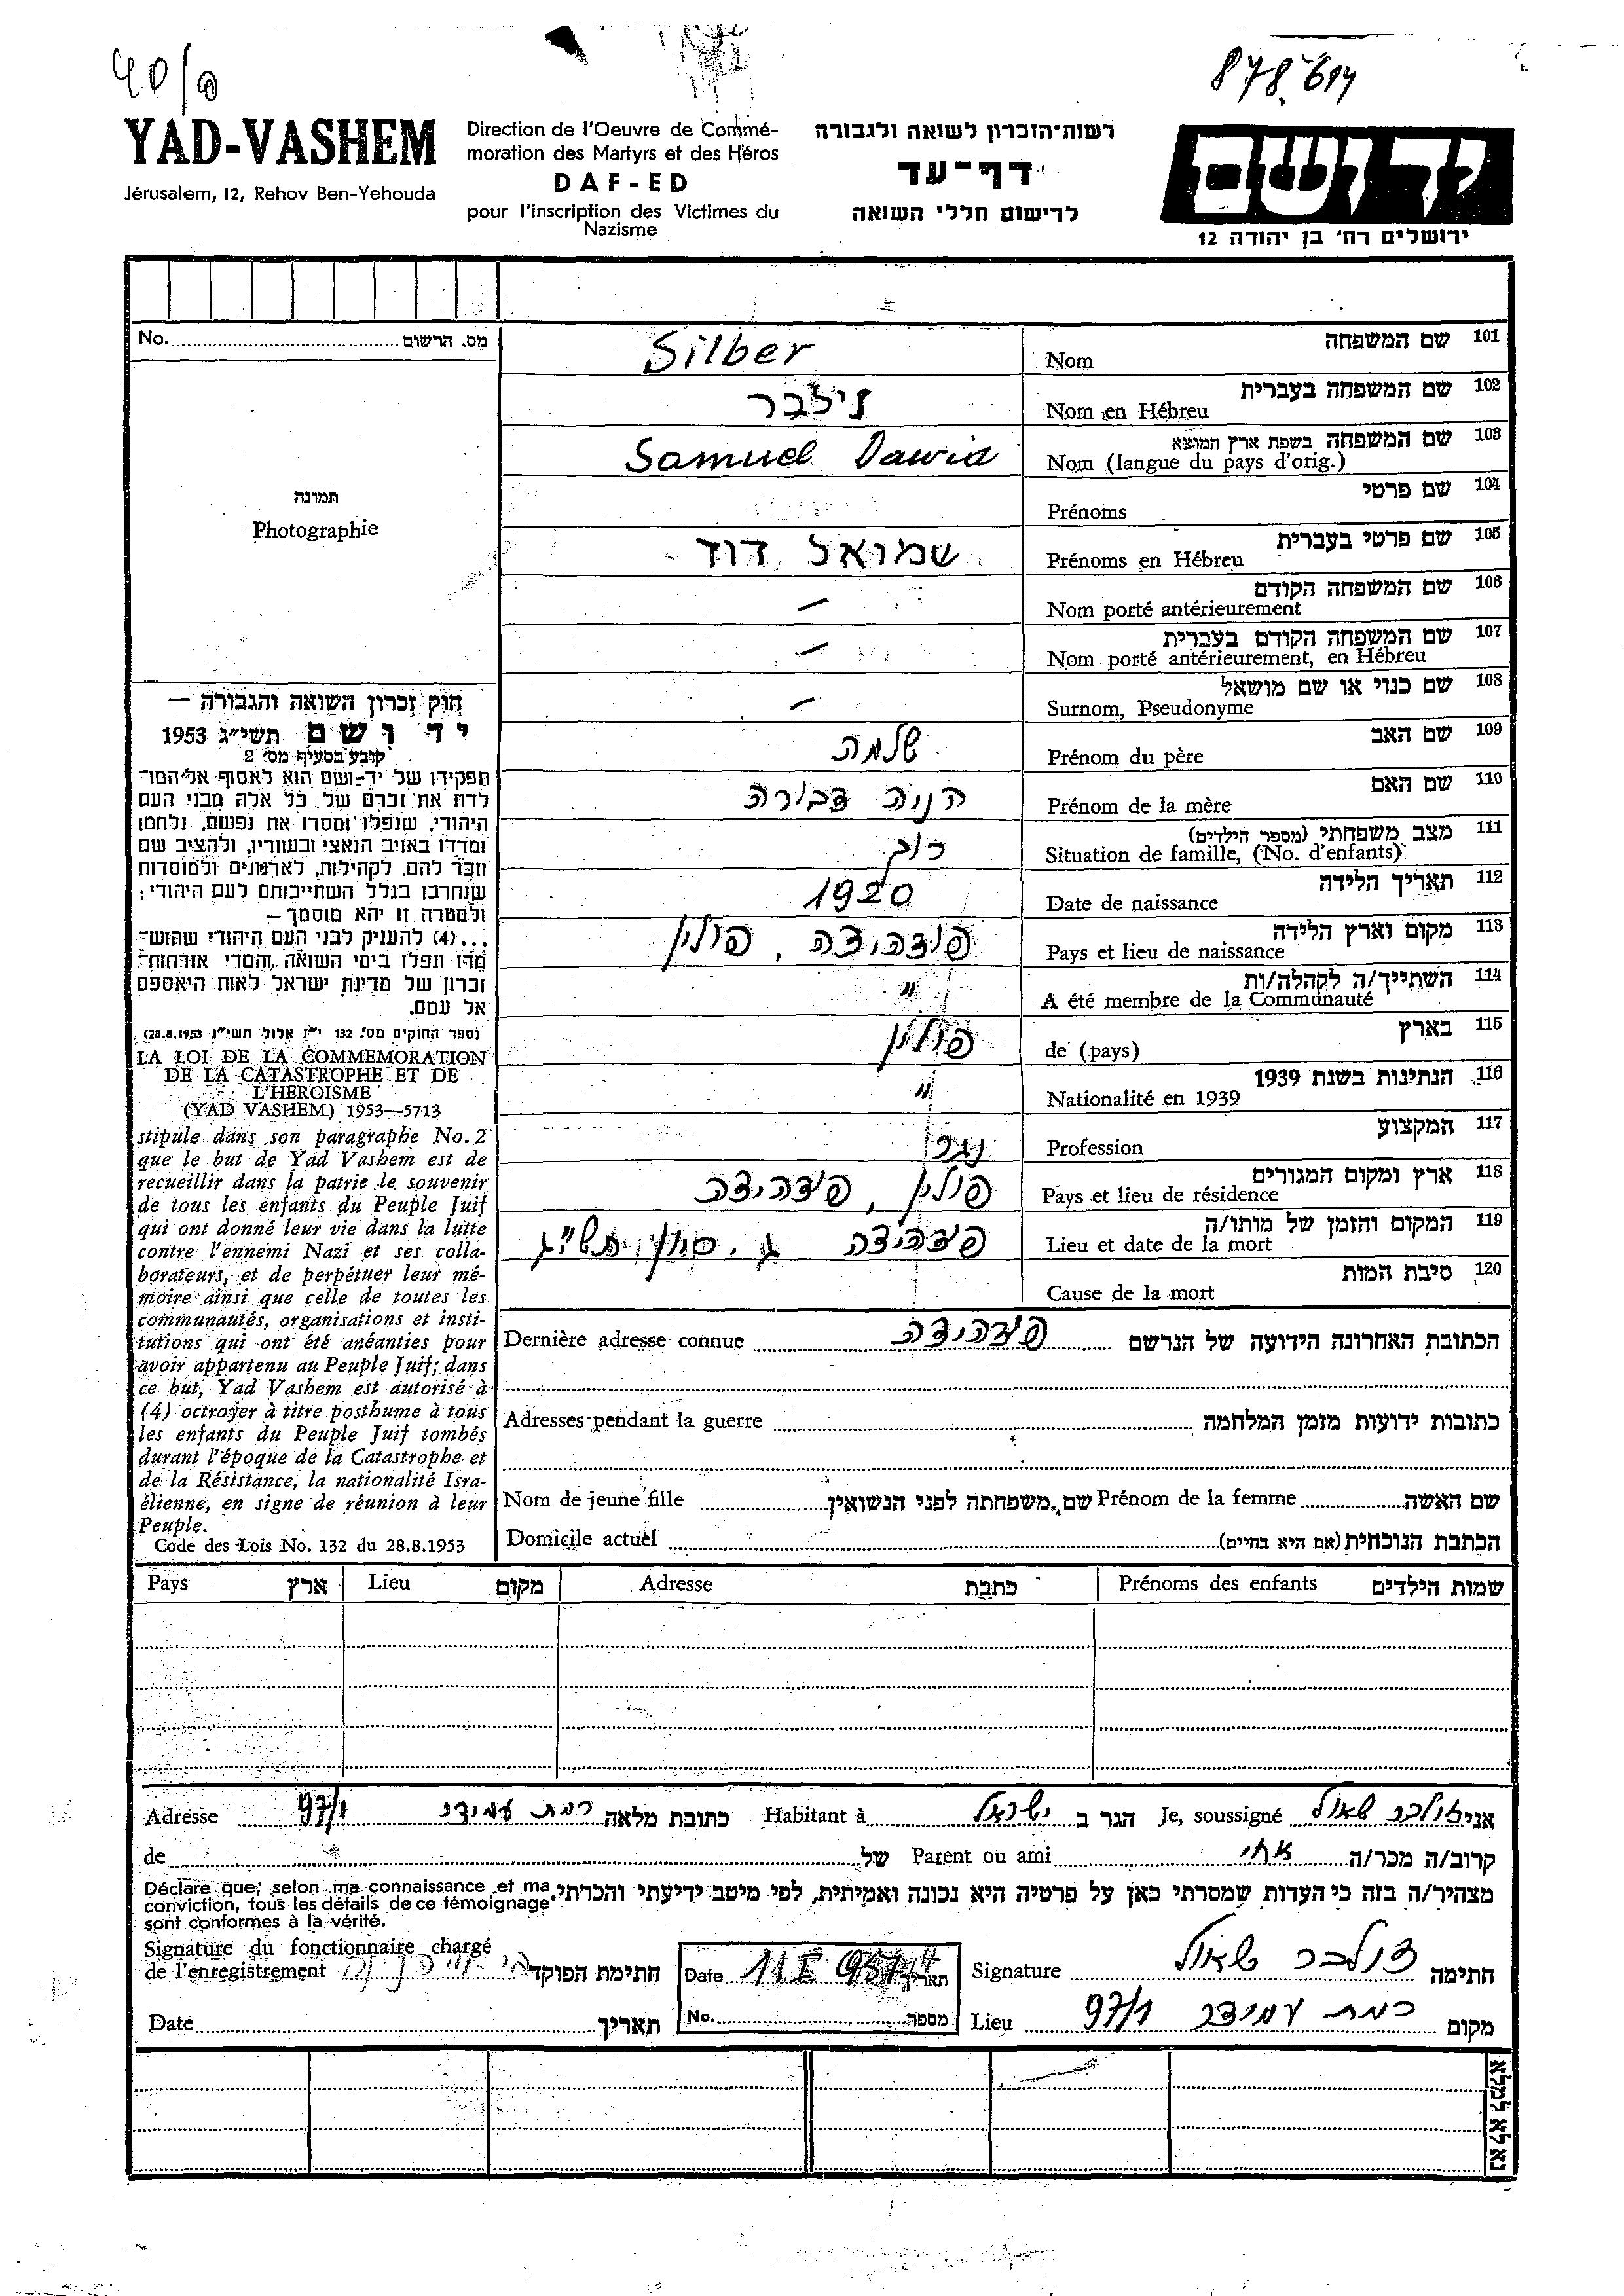 40/
878.614
YAD-VASHEM
Jérusalem, 12, Rehov Ben-Yehouda
Direction de l'Oeuvre de Commé-
moration des Martyrs et des Héros
DAF-ED
pour l'inscription des Victimes du
Nazisme
רשות-הזכרון לשואה ולגבורה
דף-עד
לרישום חללי השואה
יד ושם
ירושלים רח' בן יהודה 12
No. מס. הרשום
תמונה
Photographie
Silber
101 שם המשפחה
Nom
זילבר
102 שם המשפחה בעברית
Nom en Hébreu
Samuel Dawid
103 שם המשפחה בשפת ארץ המוצא
Nom (langue du pays d'orig.)
104 שם פרטי
Prénoms
שמואל דוד
105 שם פרטי בעברית
Prénoms en Hébreu
—
106 שם המשפחה הקודם
Nom porté antérieurement
—
107 שם המשפחה הקודם בעברית
Nom porté antérieurement, en Hébreu
—
108 שם כנוי או שם מושאל
Surnom, Pseudonyme
שלמה
109 שם האב
Prénom du père
הניה דבורה
110 שם האם
Prénom de la mère
רוק
111 מצב משפחתי (מספר הילדים)
Situation de famille, (No. d'enfants)
1920
112 תאריך הלידה
Date de naissance
פולין
113 מקום וארץ הלידה
Pays et lieu de naissance
"
114 השתייך/ה לקהלה/ות
A été membre de la Communauté
פולין
115 בארץ
de (pays)
"
116 הנתינות בשנת 1939
Nationalité en 1939
נגר
117 המקצוע
Profession
פולין
118 ארץ ומקום המגורים
Pays et lieu de résidence
תש"ג
119 המקום והזמן של מותו/ה
Lieu et date de la mort
120 סיבת המות
Cause de la mort
חוק זכרון השואה והגבורה —
יד ושם תשי"ג 1953
קובע בסעיף מס' 2
תפקידו של יד-ושם הוא לאסוף אל המו-
לדת את זכרם של כל אלה מבני העם
היהודי, שנפלו ומסרו את נפשם, נלחמו
ומרדו באויב הנאצי ובעוזריו, ולהציב שם
וזכר להם, לקהילות, לארגונים ולמוסדות
שנחרבו בגלל השתייכותם לעם היהודי;
ולמטרה זו יהא מוסמך —
...(4) להעניק לבני העם היהודי שהוש-
מדו ונפלו בימי השואה והמרי אזרחות-
זכרון של מדינת ישראל לאות היאספם
אל עמם.
(ספר החוקים מס' 132 י"ז אלול תשי"ג 28.8.1953)
LA LOI DE LA COMMEMORATION
DE LA CATASTROPHE ET DE
L'HEROISME
(YAD VASHEM) 1953—5713
stipule dans son paragraphe No. 2
que le but de Yad Vashem est de
recueillir dans la patrie le souvenir
de tous les enfants du Peuple Juif
qui ont donné leur vie dans la lutte
contre l'ennemi Nazi et ses colla-
borateurs, et de perpétuer leur mé-
moire ainsi que celle de toutes les
communautés, organisations et insti-
tutions qui ont été anéanties pour
avoir appartenu au Peuple Juif; dans
ce but, Yad Vashem est autorisé à
(4) octroyer à titre posthume à tous
les enfants du Peuple Juif tombés
durant l'époque de la Catastrophe et
de la Résistance, la nationalité Isra-
élienne, en signe de réunion à leur
Peuple.
Code des Lois No. 132 du 28.8.1953
Dernière adresse connue הכתובת האחרונה הידועה של הנרשם
Adresses pendant la guerre כתובות ידועות מזמן המלחמה
Nom de jeune fille שם משפחתה לפני הנשואין Prénom de la femme שם האשה
Domicile actuel הכתבת הנוכחית (אם היא בחיים)
Pays ארץ Lieu מקום Adresse כתבת Prénoms des enfants שמות הילדים
אני זילבר שאול Je, soussigné הגר ב ישראל Habitant à כתובת מלאה רמת עמידר 97/1 Adresse
קרוב/ה מכר/ה אחי Parent ou ami של de
מצהיר/ה בזה כי העדות שמסרתי כאן על פרטיה היא נכונה ואמיתית, לפי מיטב ידיעתי והכרתי.
Déclare que, selon ma connaissance et ma
conviction, tous les détails de ce témoignage
sont conformes à la vérité.
Signature du fonctionnaire chargé
de l'enregistrement חתימת הפוקד
Date תאריך
Date תאריך
No. מספר
Signature זילבר שאול חתימה
Lieu רמת עמידר 97/1 מקום
נא לא למלא